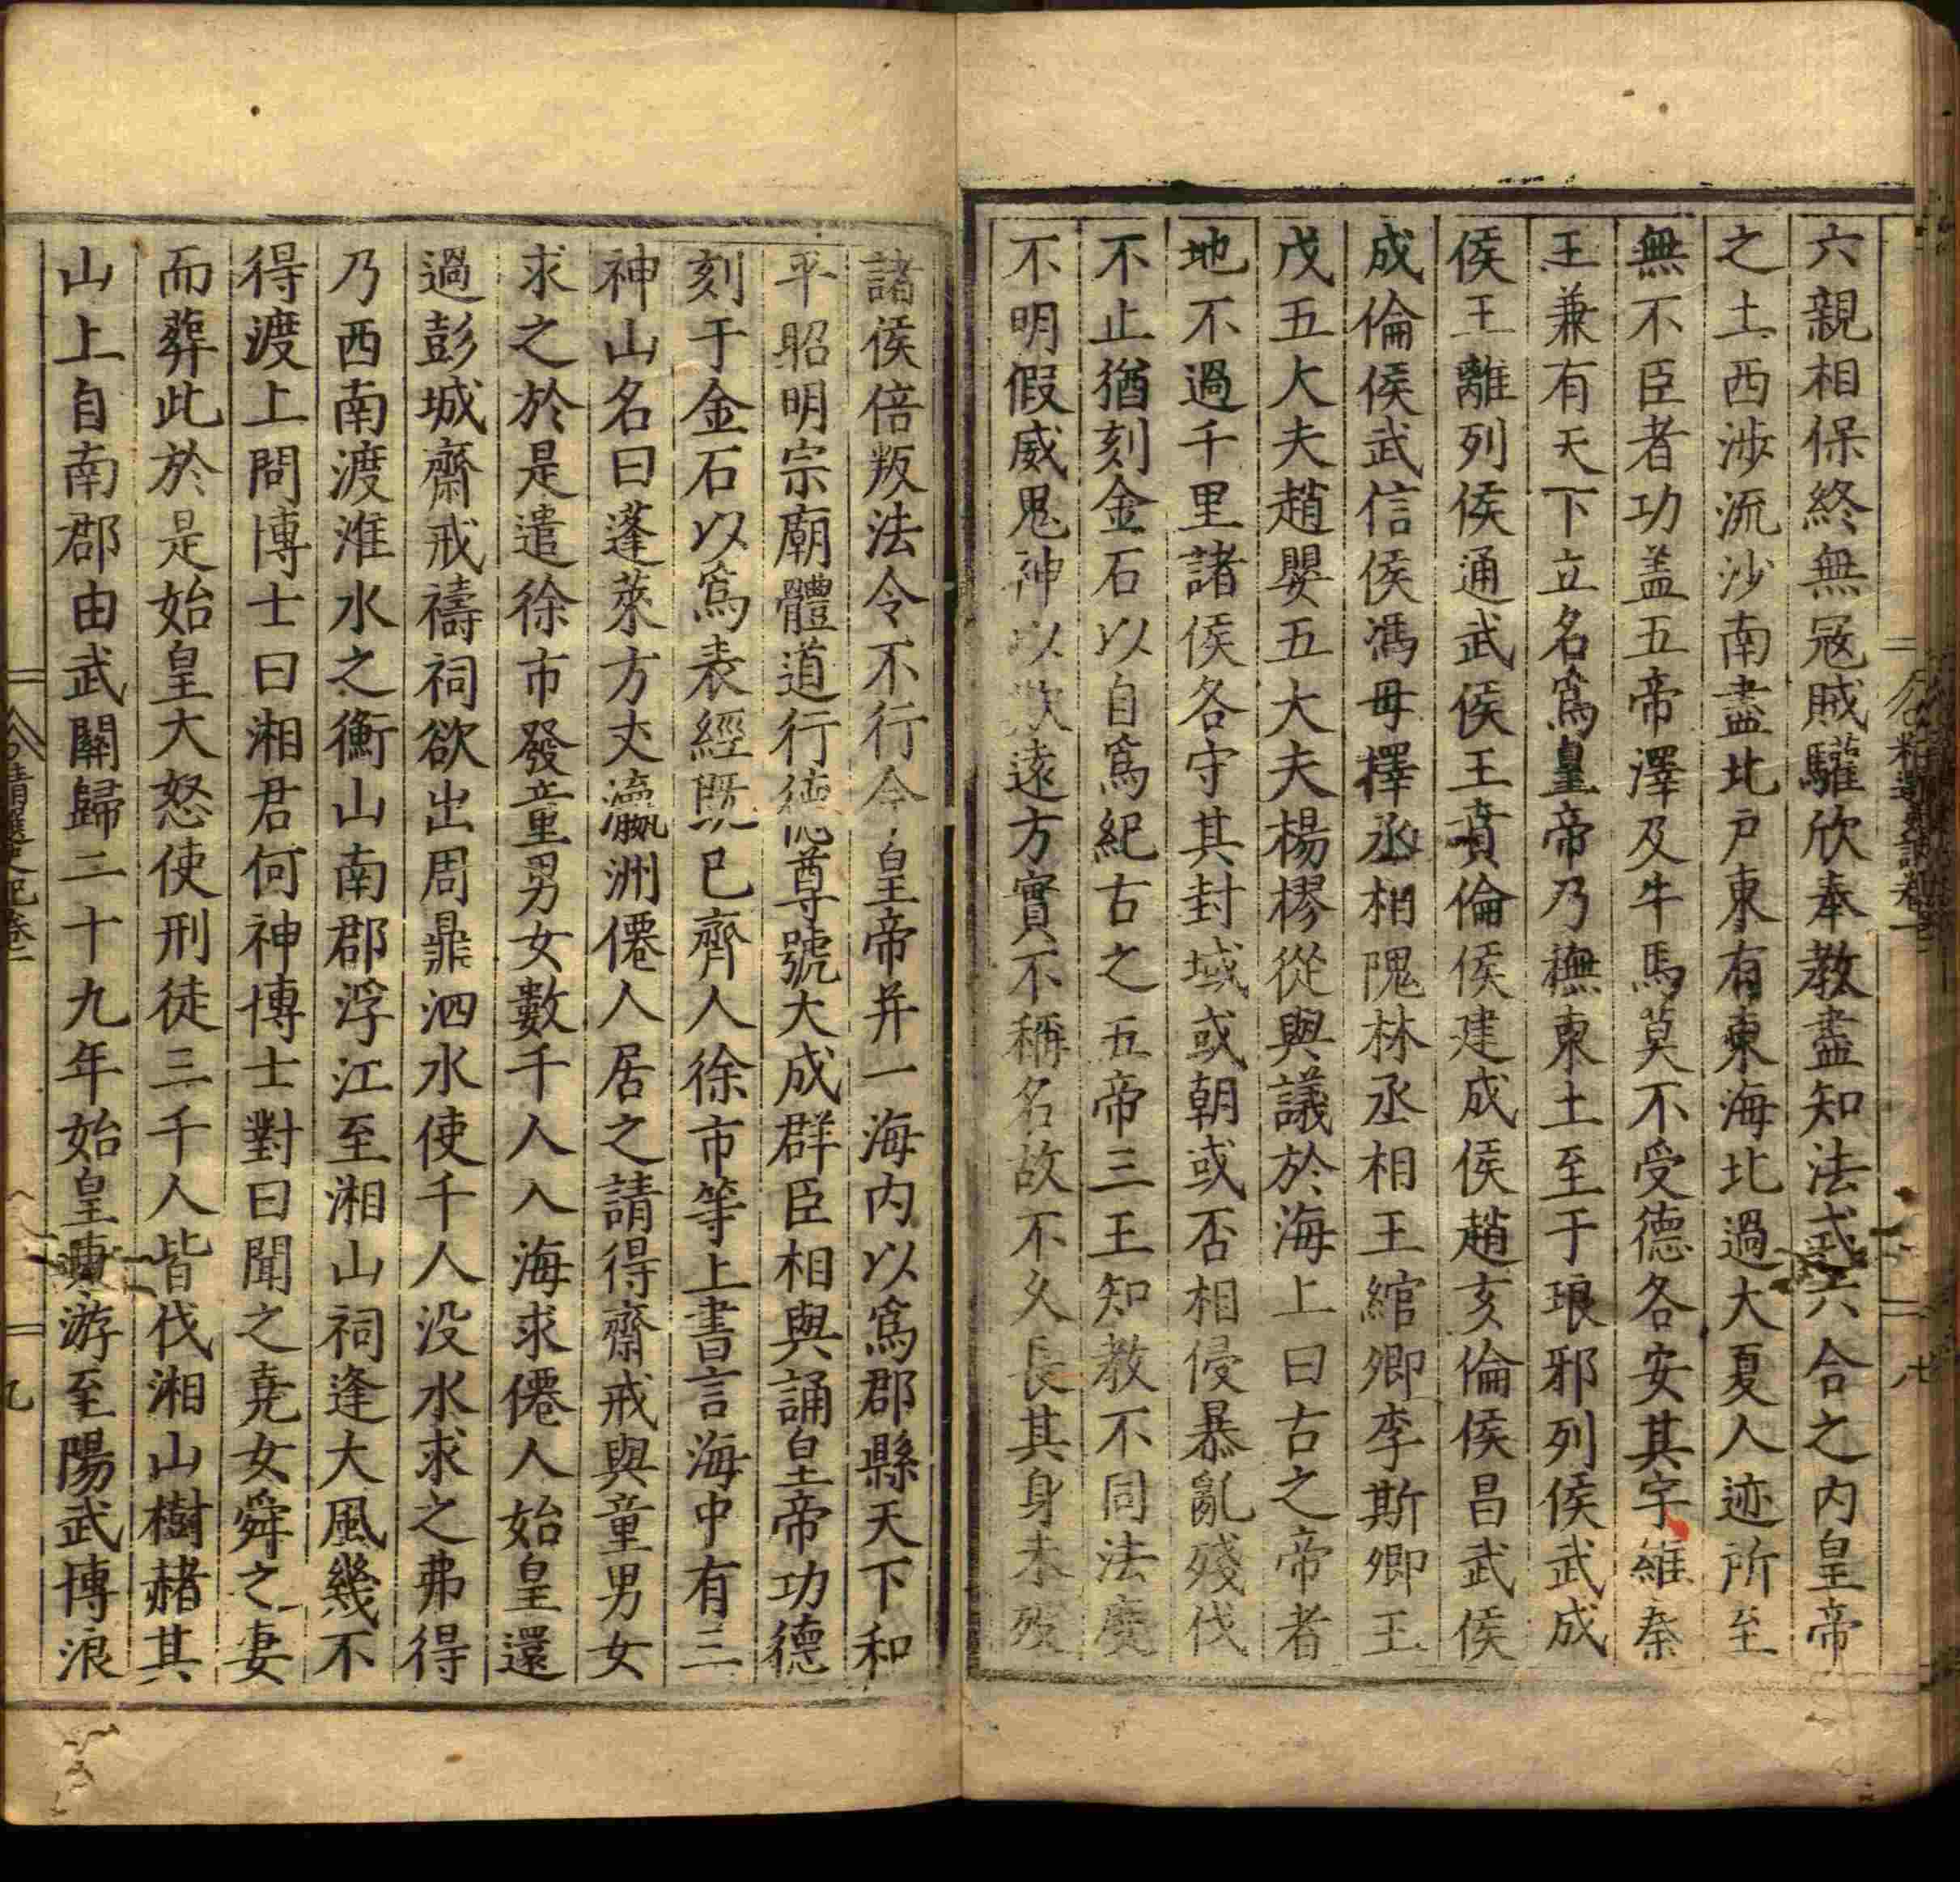 六親相保終無寇賊驩欣奉教盡知法式六合之内皇帝
之土西涉流沙南盡北戶東有東海北過大夏人迹所至
無不臣者功盖五帝澤及牛馬莫不受德各安其宇維秦
王兼有天下立名爲皇帝乃撫東土至于琅邪列侯武成
侯王離列侯通武侯王賁倫侯建成侯趙亥倫侯昌武侯
成倫侯武信侯馮毋擇丞相隗林丞相王綰卿李斯卿王
戊五大夫趙嬰五大夫楊樛從與議於海上曰古之帝者
地不過千里諸侯各守其封域或朝或否相侵暴亂殘伐
不止猶刻金石以自爲紀古之五帝三王知教不同法度
不明假威鬼神以欺遠方實不稱名故不久長其身未歿
諸侯倍叛法令不行今皇帝并一海内以爲郡縣天下和
平昭明宗廟體道行德尊號大成群臣相與誦皇帝功德
刻于金石以爲表經既已齊人徐市等上書言海中有三
神山名曰蓬萊方丈瀛洲僊人居之請得齋戒與童男女
求之於是遣徐市發童男女數千人入海求僊人始皇還
過彭城齋戒禱祠欲出周鼎泗水使千人没水求之弗得
乃西南渡淮水之衡山南郡浮江至湘山祠逢大風幾不
得渡上問博士曰湘君何神博士對曰聞之堯女舜之妻
而葬此於是始皇大怒使刑徒三千人皆伐湘山樹赭其
山上自南郡由武關歸二十九年始皇東游至陽武博浪
九